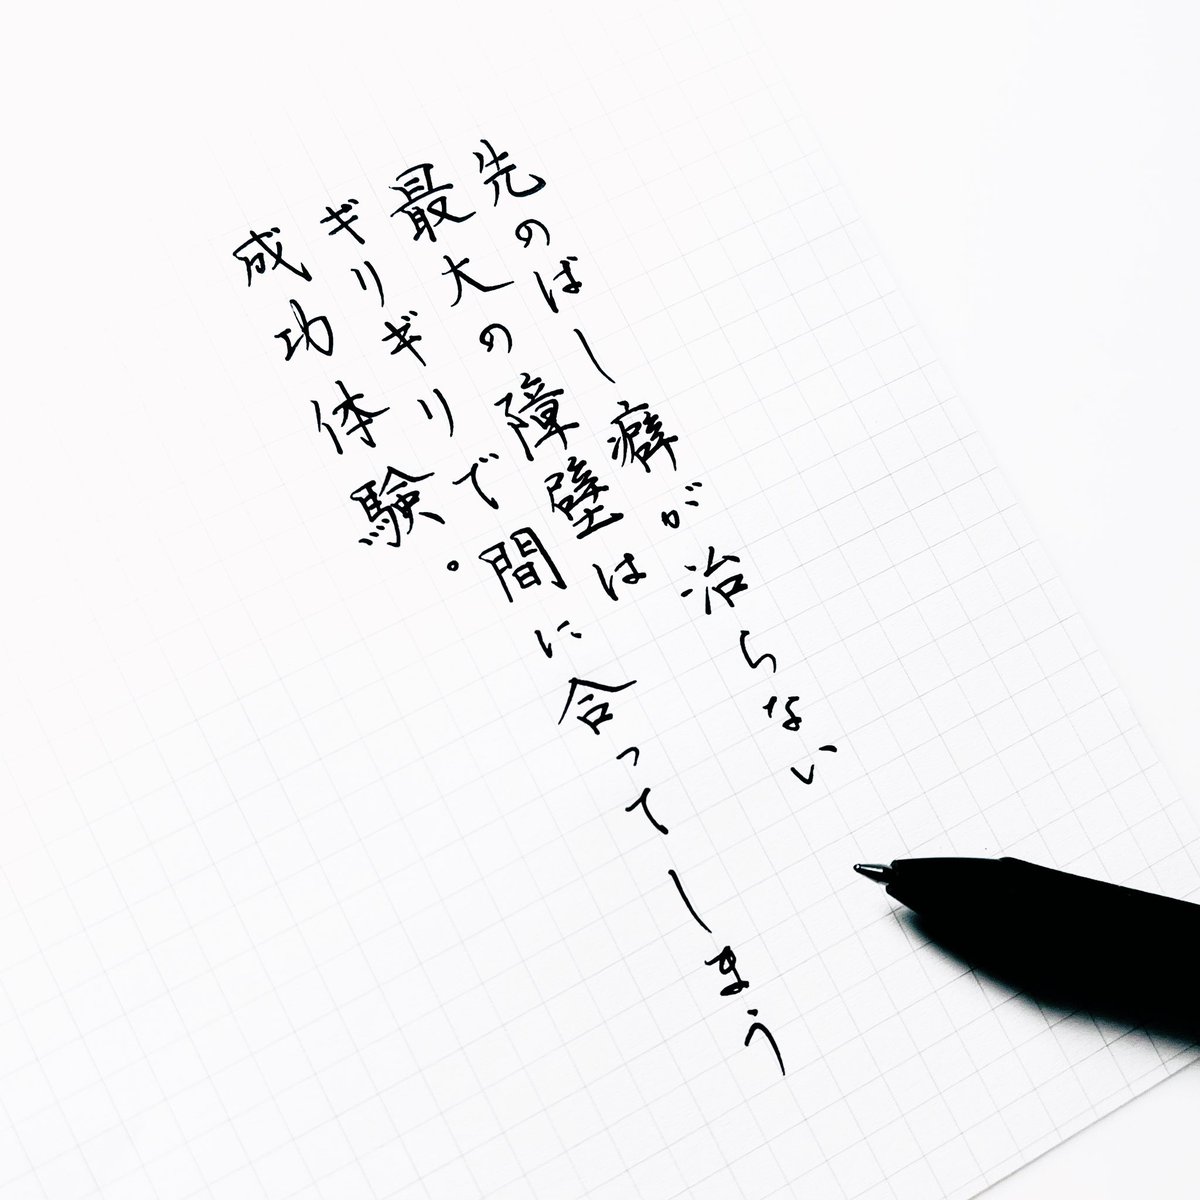 先のばし癖が治らない
最大の障壁は
ギリギリで間に合ってしまう
成功体験。